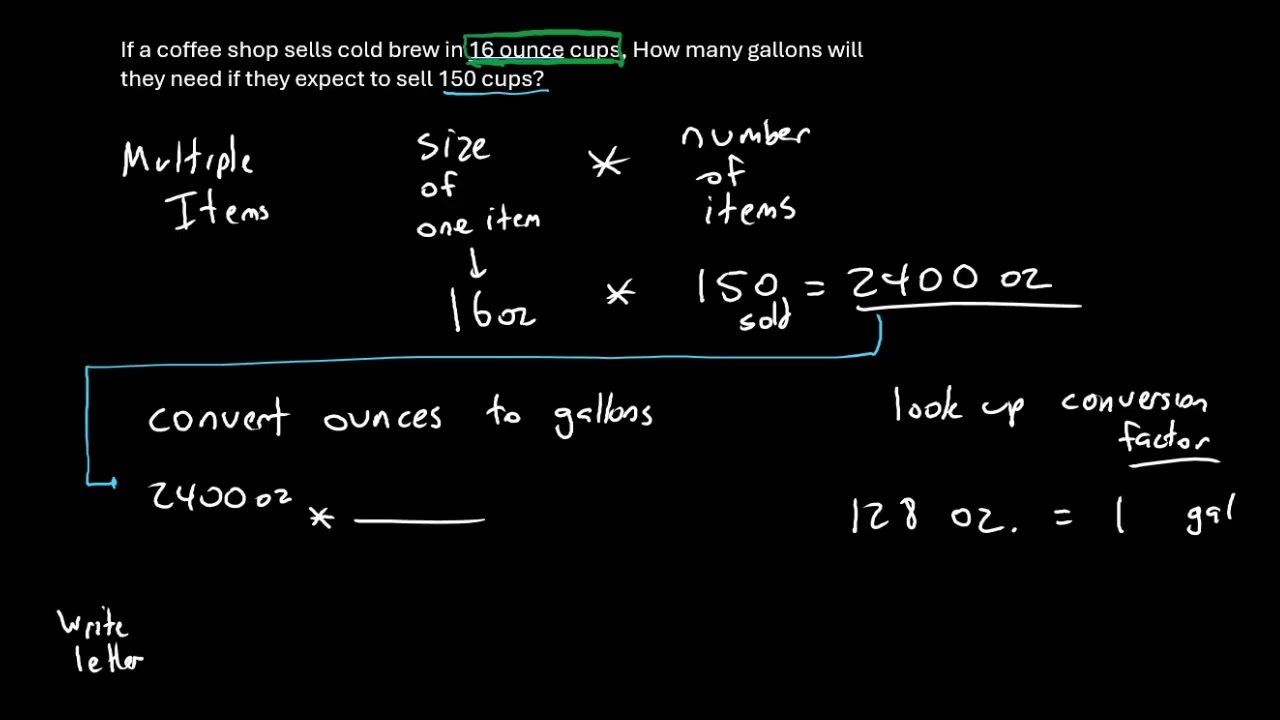 If a coffee shop sells cold brew in 16 ounce cups, How many gallons will
they need if they expect to sell 150 cups?
Multiple
Items
size
of
one item
*
number
of
items
16oz * 150 = 2400 oz
sold
convert ounces to gallons
look up conversion
factor
2400 oz *
128 oz. = 1 gal
write
letter